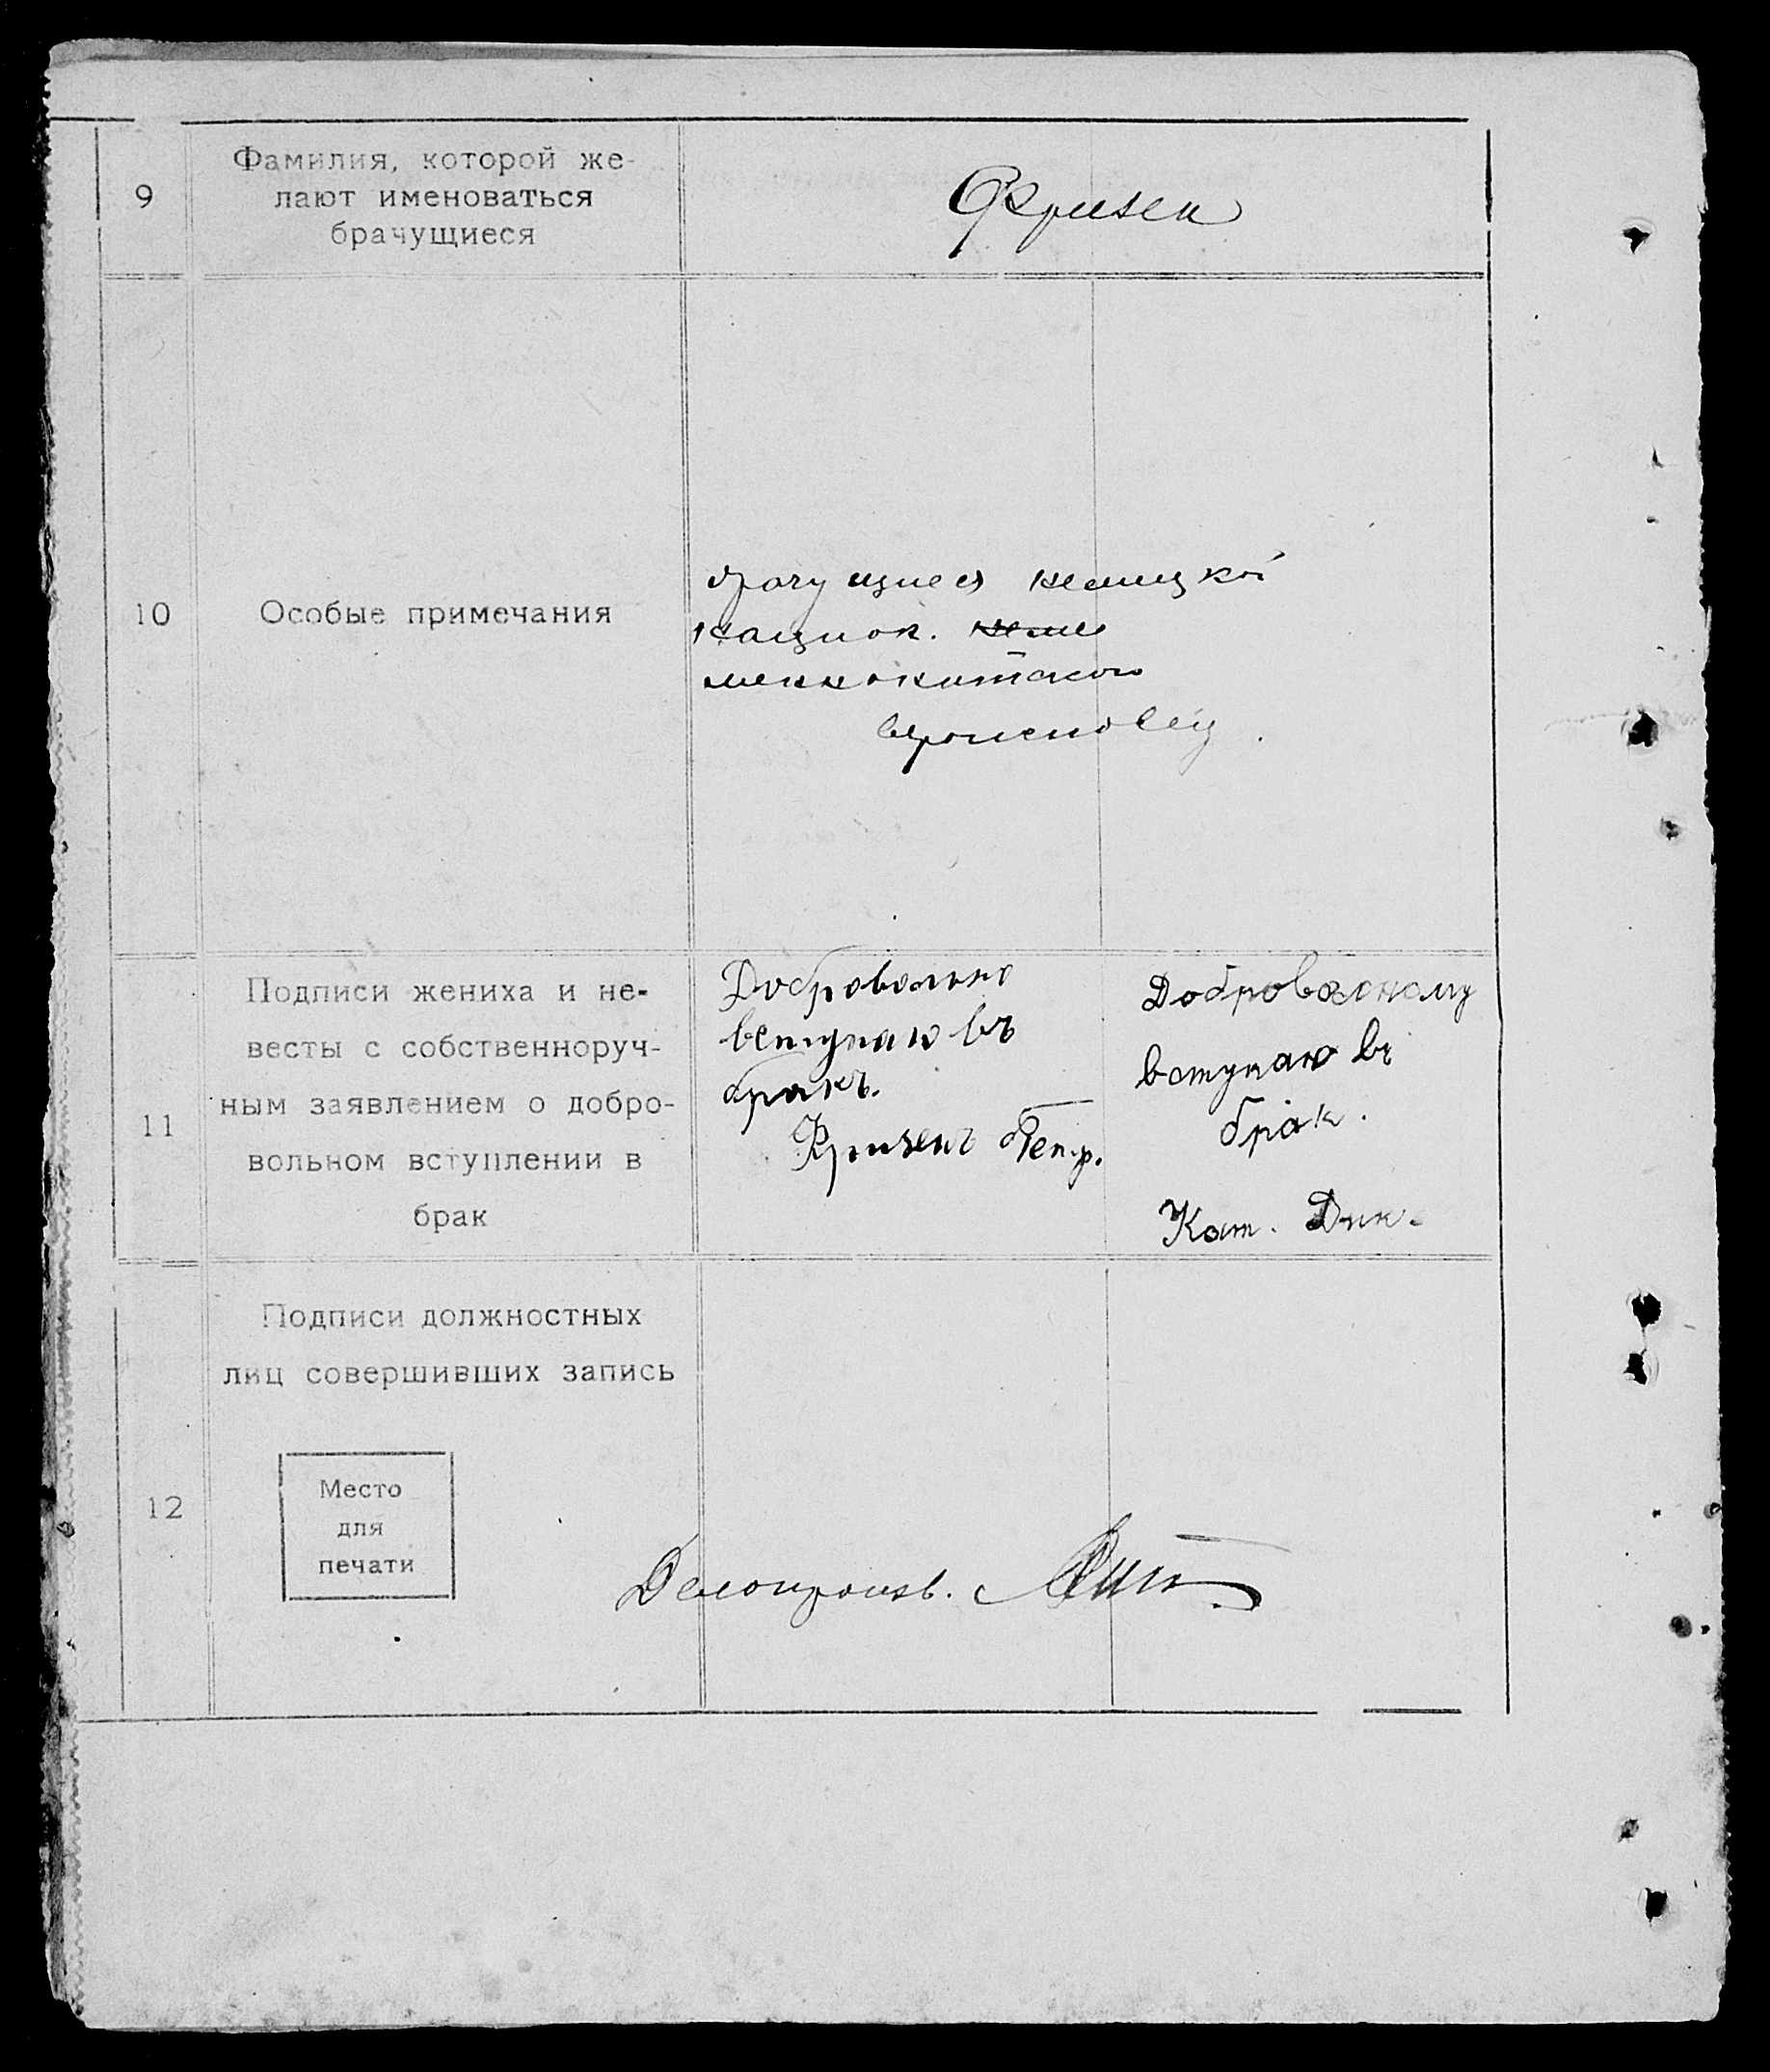 9
Фамилия, которой же-
лают именоваться
брачущиеся
Фризен
10
Особые примечания
брачущиеся немецкой
национ.
меннонитского
вероисповед.
11
Подписи жениха и не-
весты с собственноруч-
ным заявлением о добро-
вольном вступлении в
брак
Добровольно
вступаю въ
бракъ.
Фризенъ Петр.
Доброволному
вступаю въ
брак.
Кат. Дик.
12
Подписи должностных
лиц совершивших запись
Место
для
печати
Делопроизв.